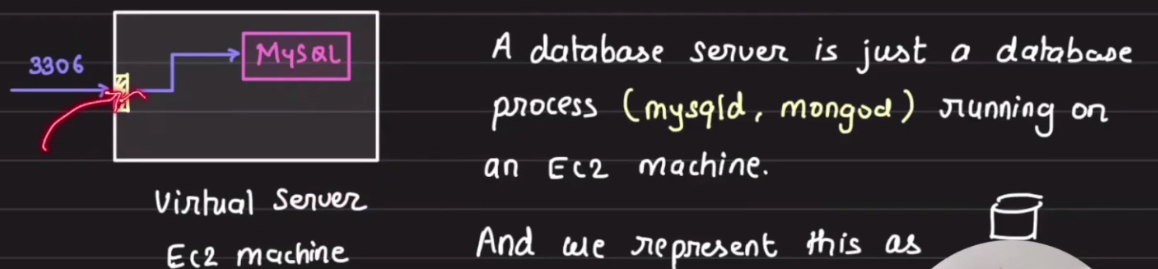 3306
MySQL
Virtual Server
Ec2 machine
A database server is just a database
process (mysqld, mongod) running on
an Ec2 machine.
And we represent this as